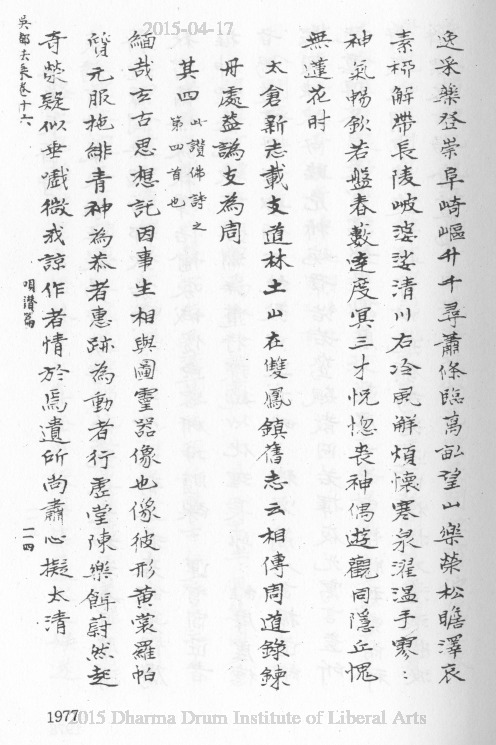 2015-04-17
逸采藥登崇阜崎嶇升千尋蕭條臨萬畝望山樂榮松瞻澤哀
素柳解帶長陵岥婆娑清川右泠風解煩懷寒泉濯溫手寥〻
神氣暢欽若盤春藪達度冥三才恍惚喪神偶遊觀同隱丘愧
無蓮花时
太倉新志載支道林土山在雙鳳鎮舊志云相傳周道錄鍊
丹處葢譌支為周
其四 此讚佛詩之第四首也
緬哉玄古思想託因事生相與圖靈器像也像彼形黃裳羅帕
質元服拖緋青神為恭者惠跡為動者行虛堂陳樂餌蔚然起
奇榮疑似垂嘅微我諒作者情於焉遺所尚肅心擬太清
吳都法乘卷十六 唄讚篇 二一四
1977
2015 Dharma Drum Institute of Liberal Arts